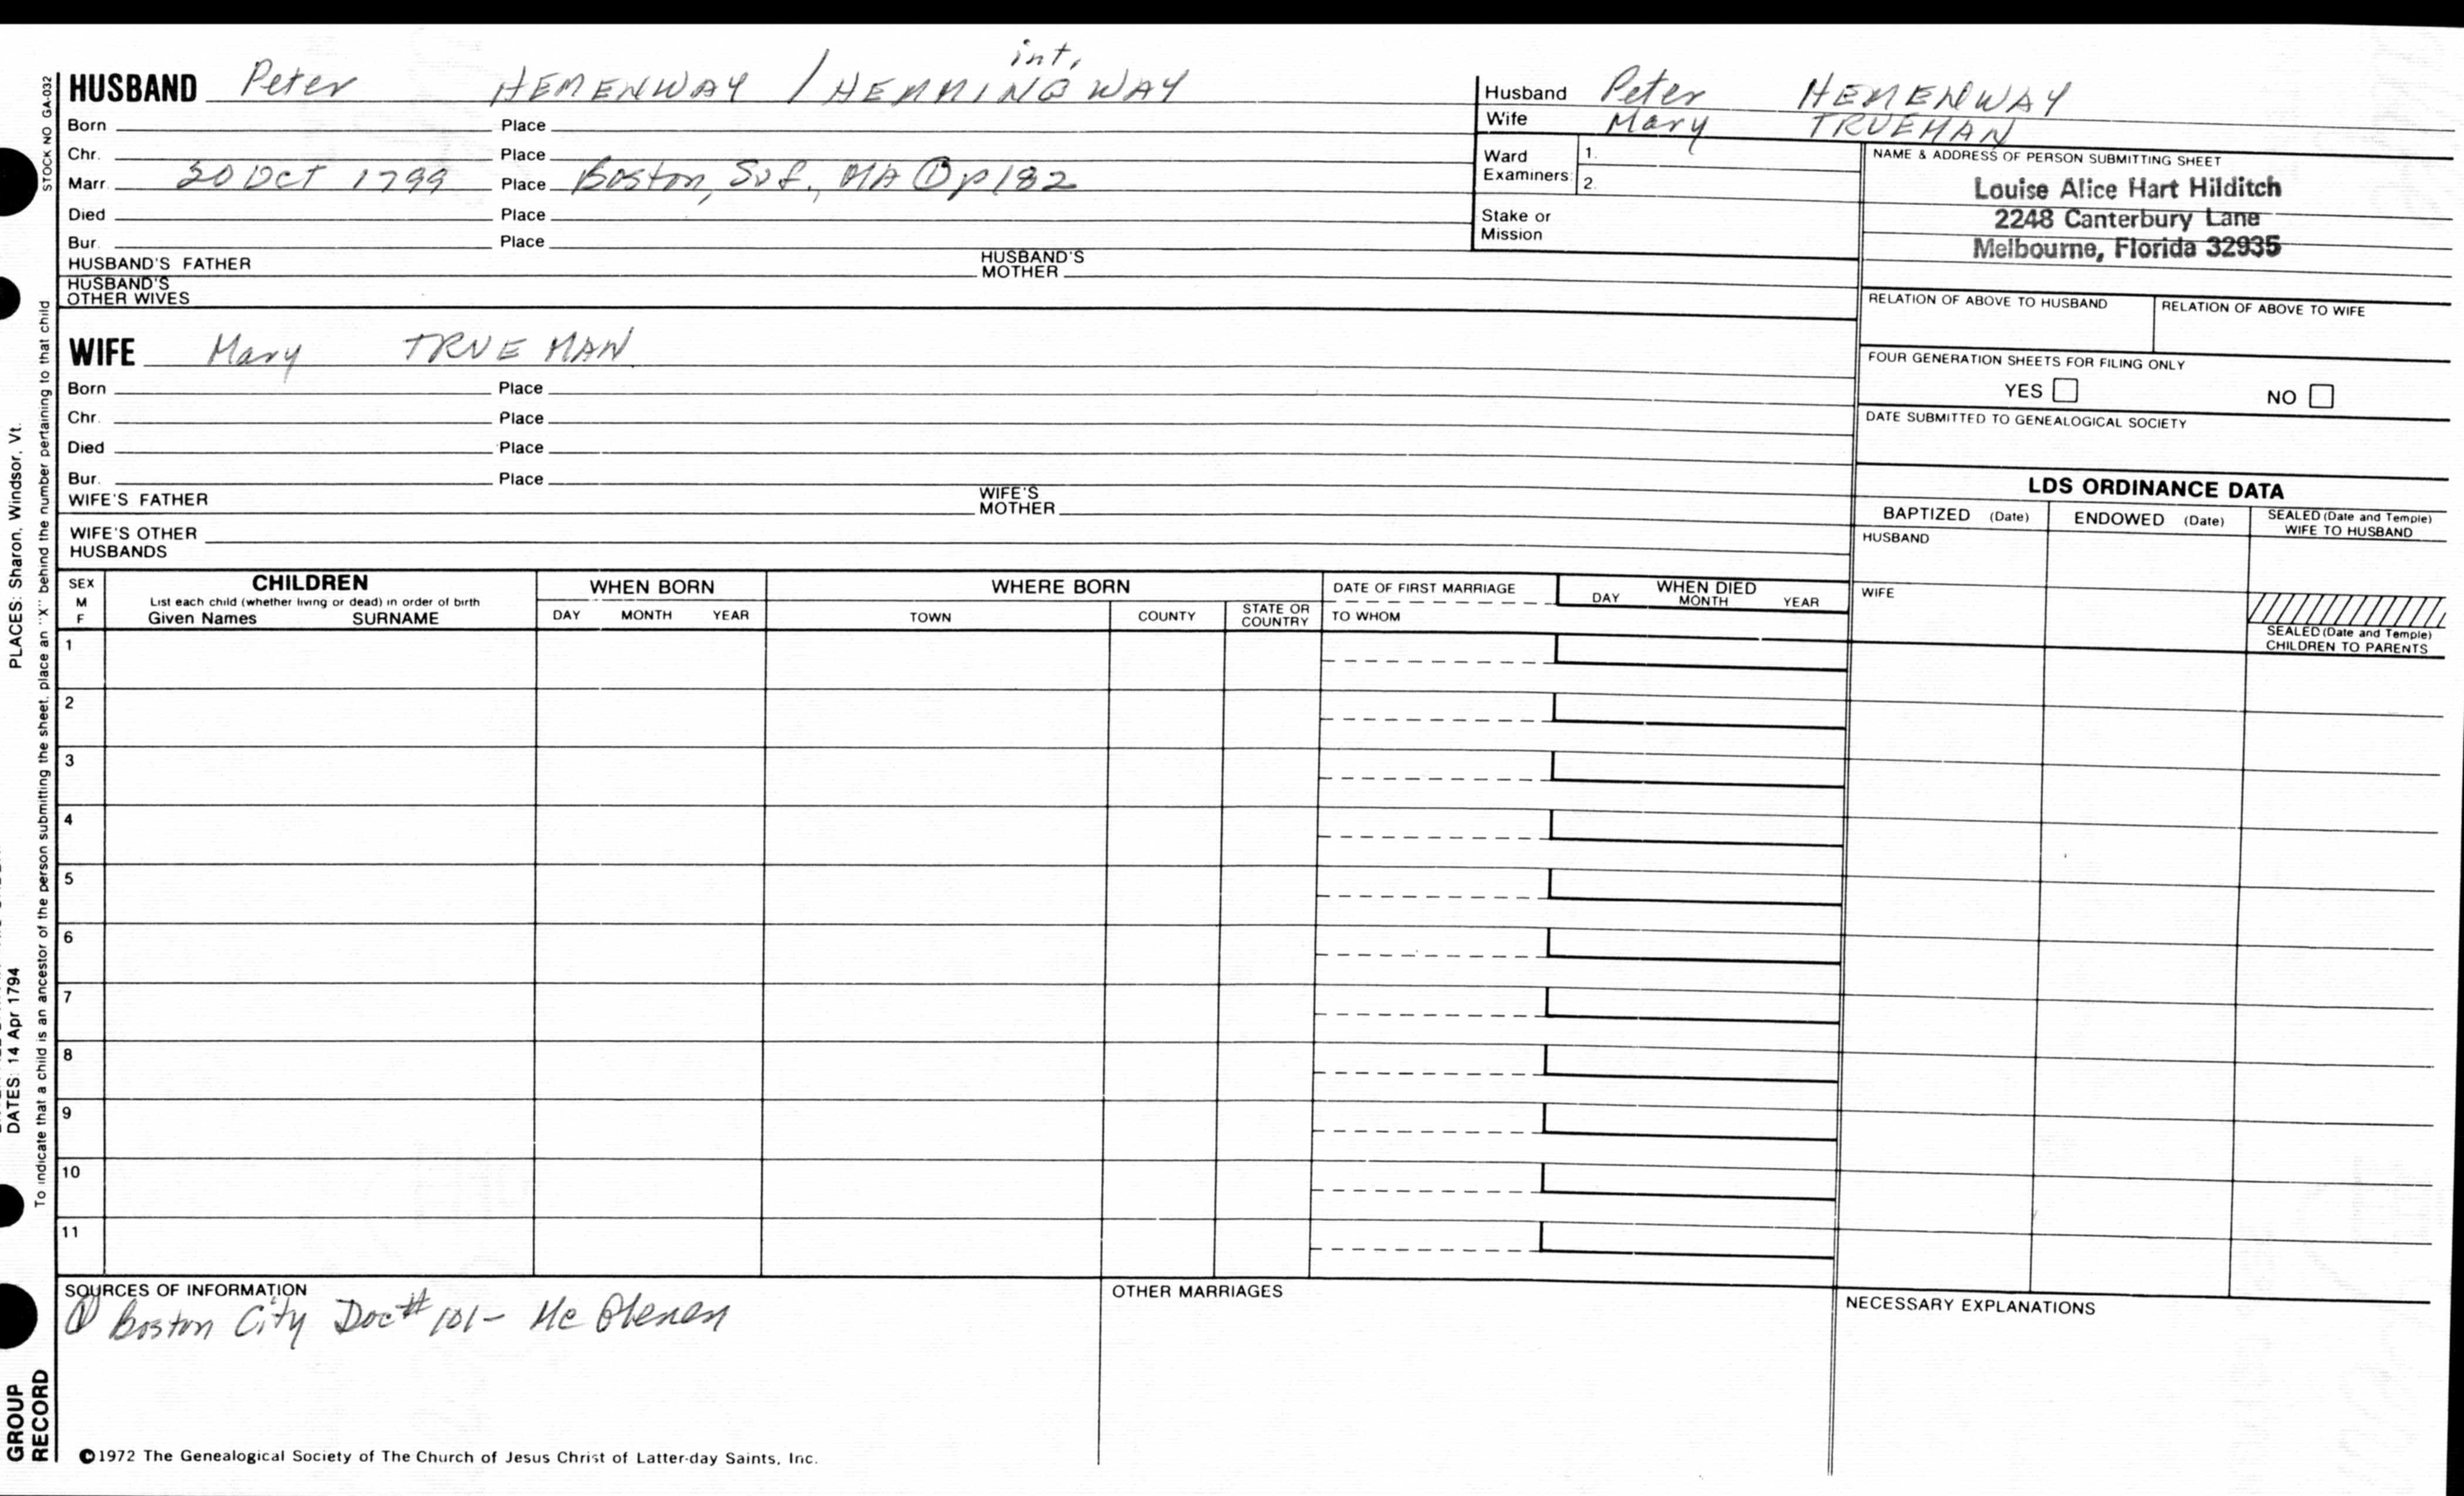 int,
HUSBAND Peter HEMENWAY / HEMMINGWAY
Born Place
Chr. Place
Marr. 30 Oct 1799 Place Boston, Suf., MA ① p182
Died Place
Bur. Place
HUSBAND'S FATHER HUSBAND'S MOTHER
HUSBAND'S OTHER WIVES
Husband Peter HEMENWAY
Wife Mary TRUEMAN
Ward Examiners 1.
2.
Stake or Mission
NAME & ADDRESS OF PERSON SUBMITTING SHEET
Louise Alice Hart Hilditch
2248 Canterbury Lane
Melbourne, Florida 32935
RELATION OF ABOVE TO HUSBAND RELATION OF ABOVE TO WIFE
FOUR GENERATION SHEETS FOR FILING ONLY
YES NO
DATE SUBMITTED TO GENEALOGICAL SOCIETY
WIFE Mary TRUEMAN
Born Place
Chr. Place
Died Place
Bur. Place
WIFE'S FATHER WIFE'S MOTHER
WIFE'S OTHER HUSBANDS
LDS ORDINANCE DATA
BAPTIZED (Date) ENDOWED (Date) SEALED (Date and Temple) WIFE TO HUSBAND
HUSBAND
WIFE
SEALED (Date and Temple) CHILDREN TO PARENTS
SEX M F
CHILDREN
List each child (whether living or dead) in order of birth
Given Names SURNAME
WHEN BORN
DAY MONTH YEAR
WHERE BORN
TOWN COUNTY STATE OR COUNTRY
DATE OF FIRST MARRIAGE
TO WHOM
WHEN DIED
DAY MONTH YEAR
1
2
3
4
5
6
7
8
9
10
11
SOURCES OF INFORMATION
① Boston City Doc# 101- Mc Glenen
OTHER MARRIAGES
NECESSARY EXPLANATIONS
©1972 The Genealogical Society of The Church of Jesus Christ of Latter-day Saints, Inc.
STOCK NO GA-032
To indicate that a child is an ancestor of the person submitting the sheet, place an "X" behind the number pertaining to that child
PLACES: Sharon, Windsor, Vt.
DATES: 14 Apr 1794
GROUP
RECORD